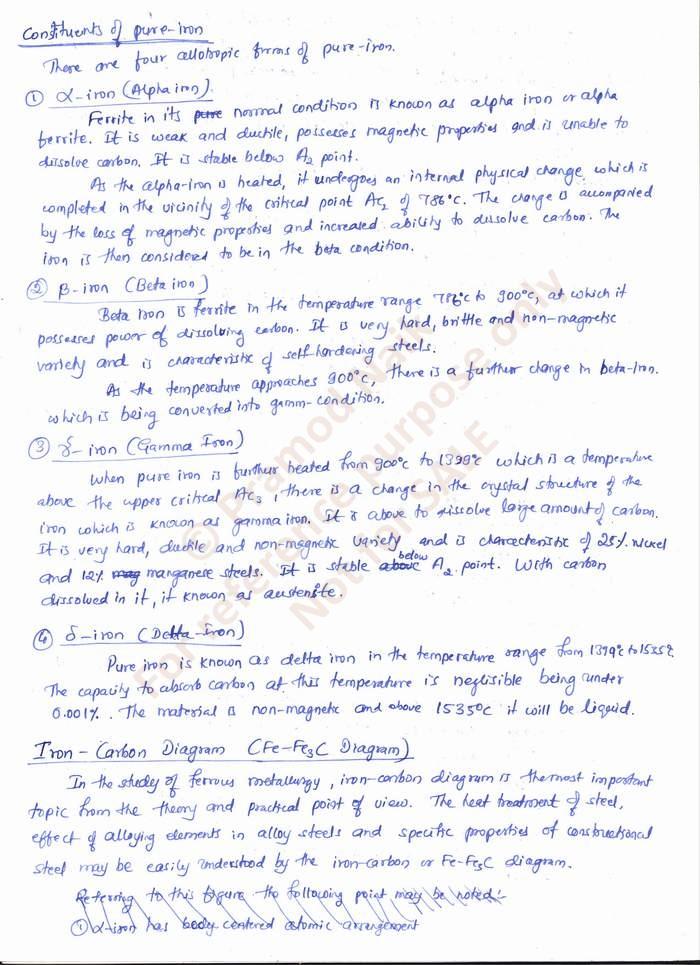 Constituents of pure-iron
There are four allotropic forms of pure-iron.
① α-iron (Alpha iron)
Ferrite in its pure normal condition is known as alpha iron or alpha
ferrite. It is weak and ductile, possesses magnetic properties and is unable to
dissolve carbon. It is stable below A2 point.
As the alpha-iron is heated, it undergoes an internal physical change, which is
completed in the vicinity of the critical point AC2 of 786°C. The change is accompanied
by the loss of magnetic properties and increased ability to dissolve carbon. The
iron is then considered to be in the beta condition.
② β-iron (Beta iron)
Beta iron is ferrite in the temperature range 786°C to 900°C, at which it
possesses power of dissolving carbon. It is very hard, brittle and non-magnetic
variety and is characteristic of self-hardening steels.
As the temperature approaches 900°C, there is a further change in beta-Iron.
which is being converted into gamm-condition.
③ γ-iron (Gamma Iron)
When pure iron is further heated from 900°C to 1399°C which is a temperature
above the upper critical AC3, there is a change in the crystal structure of the
iron which is known as gamma iron. It is above to dissolve large amount of carbon.
It is very hard, ductile and non-magnetic variety and is characteristic of 25% nickel
and 12% mag manganese steels. It is stable above below A2 point. With carbon
dissolved in it, it known as austenite.
④ δ-iron (Delta-Iron)
Pure iron is known as delta iron in the temperature range from 1399°C to 1535°C
The capacity to absorb carbon at this temperature is neglisible being under
0.001%. The material is non-magnetic and above 1535°C it will be liquid.
Iron-Carbon Diagram (Fe-Fe3C Diagram)
In the study of ferrous metallurgy, iron-carbon diagram is the most important
topic from the theory and practical point of view. The heat treatment of steel,
effect of alloying elements in alloy steels and specific properties of constructional
steel may be easily understood by the iron-carbon or Fe-Fe3C diagram.
Referring to this figure the following point may be noted:-
① α-iron has body centered atomic arrangement
© Pramod Naik
For reference purpose only
Not for SALE